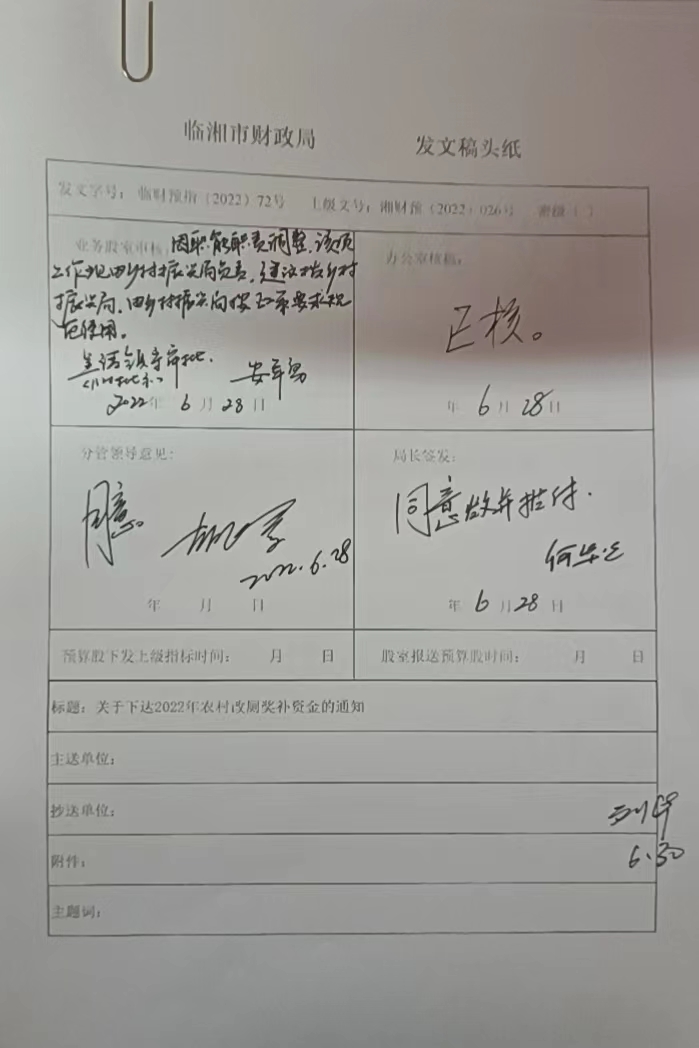 临湘市财政局 发文稿头纸
发文字号：临财预指（2022）72号 上级文号：湘财预（2022）026号 密级（ ）
业务股室审核：因职能职责调整，该项
工作现由乡村振兴局负责，建议拨乡村
振兴局，由乡村振兴局按政策要求规
范使用。
呈请领导审批。
2022年 6月28日
办公室核稿：
已核。
年 6月28日
分管领导意见：
同意。
2022.6.28
年 月 日
局长签发：
同意
年 6月28日
预算股下发上级指标时间： 月 日
股室报送预算股时间： 月 日
标题：关于下达2022年农村改厕奖补资金的通知
主送单位：
抄送单位：
附件：
6.30
主题词：